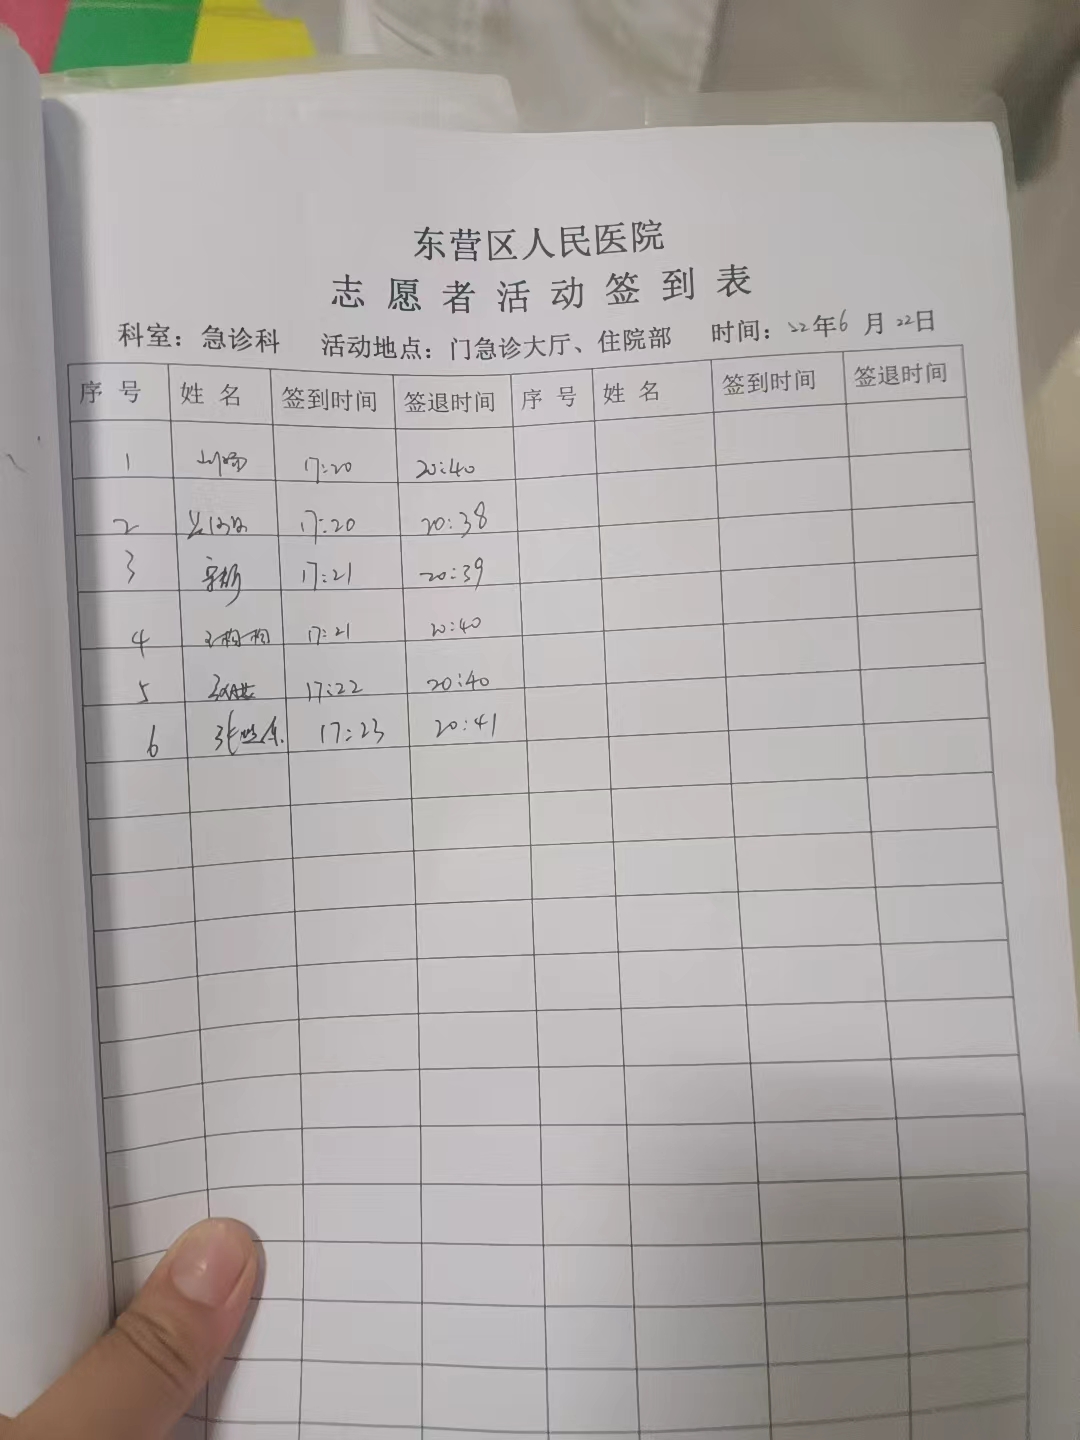 东营区人民医院
志愿者活动签到表
科室：急诊科 活动地点：门急诊大厅、住院部 时间：22年6月22日
序号 姓名 签到时间 签退时间 序号 姓名 签到时间 签退时间
1 17:20 20:40
2 17:20 20:38
3 17:21 20:39
4 17:21 20:40
5 17:22 20:40
6 17:23 20:41